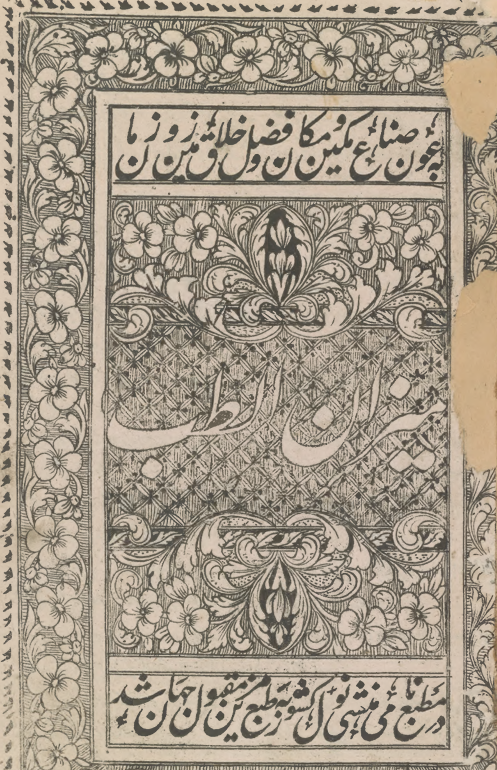 بعون صناع مکین و مکان و فضل خلاق زمین و زمان
میزان الطب
در مطبع نامی منشی نولکشور بطبع مزین مقبول جهان شد